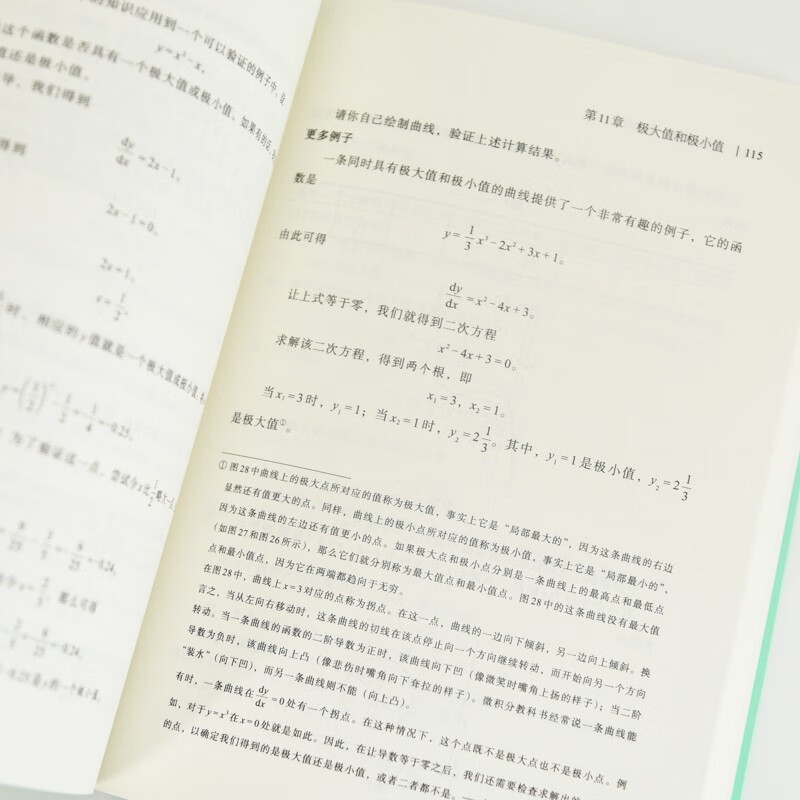 的知识应用到一个可以验证的例子中。设
y=x²-x。
这个函数是否具有一个极大值或极小值。如果有的话，
值还是极小值。
导，我们得到
dy/dx=2x-1。
得到
2x-1=0。
2x=1。
x=1/2。
时，相应的y值就是一个极大值或极小值。
y=(1/2)²-1/2=1/4
=-0.25。
为了验证这一点，尝试令x比1/2略大一点
第11章 极大值和极小值 | 115
请你自己绘制曲线，验证上述计算结果。
更多例子
一条同时具有极大值和极小值的曲线提供了一个非常有趣的例子，它的函
数是
y=1/3x³-2x²+3x+1。
由此可得
dy/dx=x²-4x+3。
让上式等于零，我们就得到二次方程
x²-4x+3=0。
求解该二次方程，得到两个根，即
x₁=3，x₂=1。
当x₁=3时，y₁=1；当x₂=1时，y₂=2 1/3。其中，y₁=1是极小值，y₂=2 1/3
是极大值①。
① 图28中曲线上的极大点所对应的值称为极大值，事实上它是“局部最大的”，因为这条曲线的右边
显然还有值更大的点。同样，曲线上的极小点所对应的值称为极小值，事实上它是“局部最小的”，
因为这条曲线的左边还有值更小的点。如果极大点和极小点分别是一条曲线上的最高点和最低点
（如图27和图26所示），那么它们就分别称为最大值点和最小值点。图28中的这条曲线没有最大值
点和最小值点，因为它在两端都趋向于无穷。
在图28中，曲线上x=3对应的点称为拐点。在这一点，曲线的一边向下倾斜，另一边向上倾斜。换
言之，当从左向右移动时，这条曲线的切线在该点停止向一个方向继续转动，而开始向另一个方向
转动。当一条曲线的函数的二阶导数为正时，该曲线向下凹（像微笑时嘴角上扬的样子）；当二阶
导数为负时，该曲线向上凸（像悲伤时嘴角向下耷拉的样子）。微积分教科书经常说一条曲线能
“装水”（向下凹），而另一条曲线则不能（向上凸）。
有时，一条曲线在dy/dx=0处有一个拐点。在这种情况下，这个点既不是极大点也不是极小点。例
如，对于y=x³在x=0处就是如此。因此，在让导数等于零之后，我们还需要检查求解出的
的点，以确定我们得到的是极大值还是极小值，或者二者都不是。